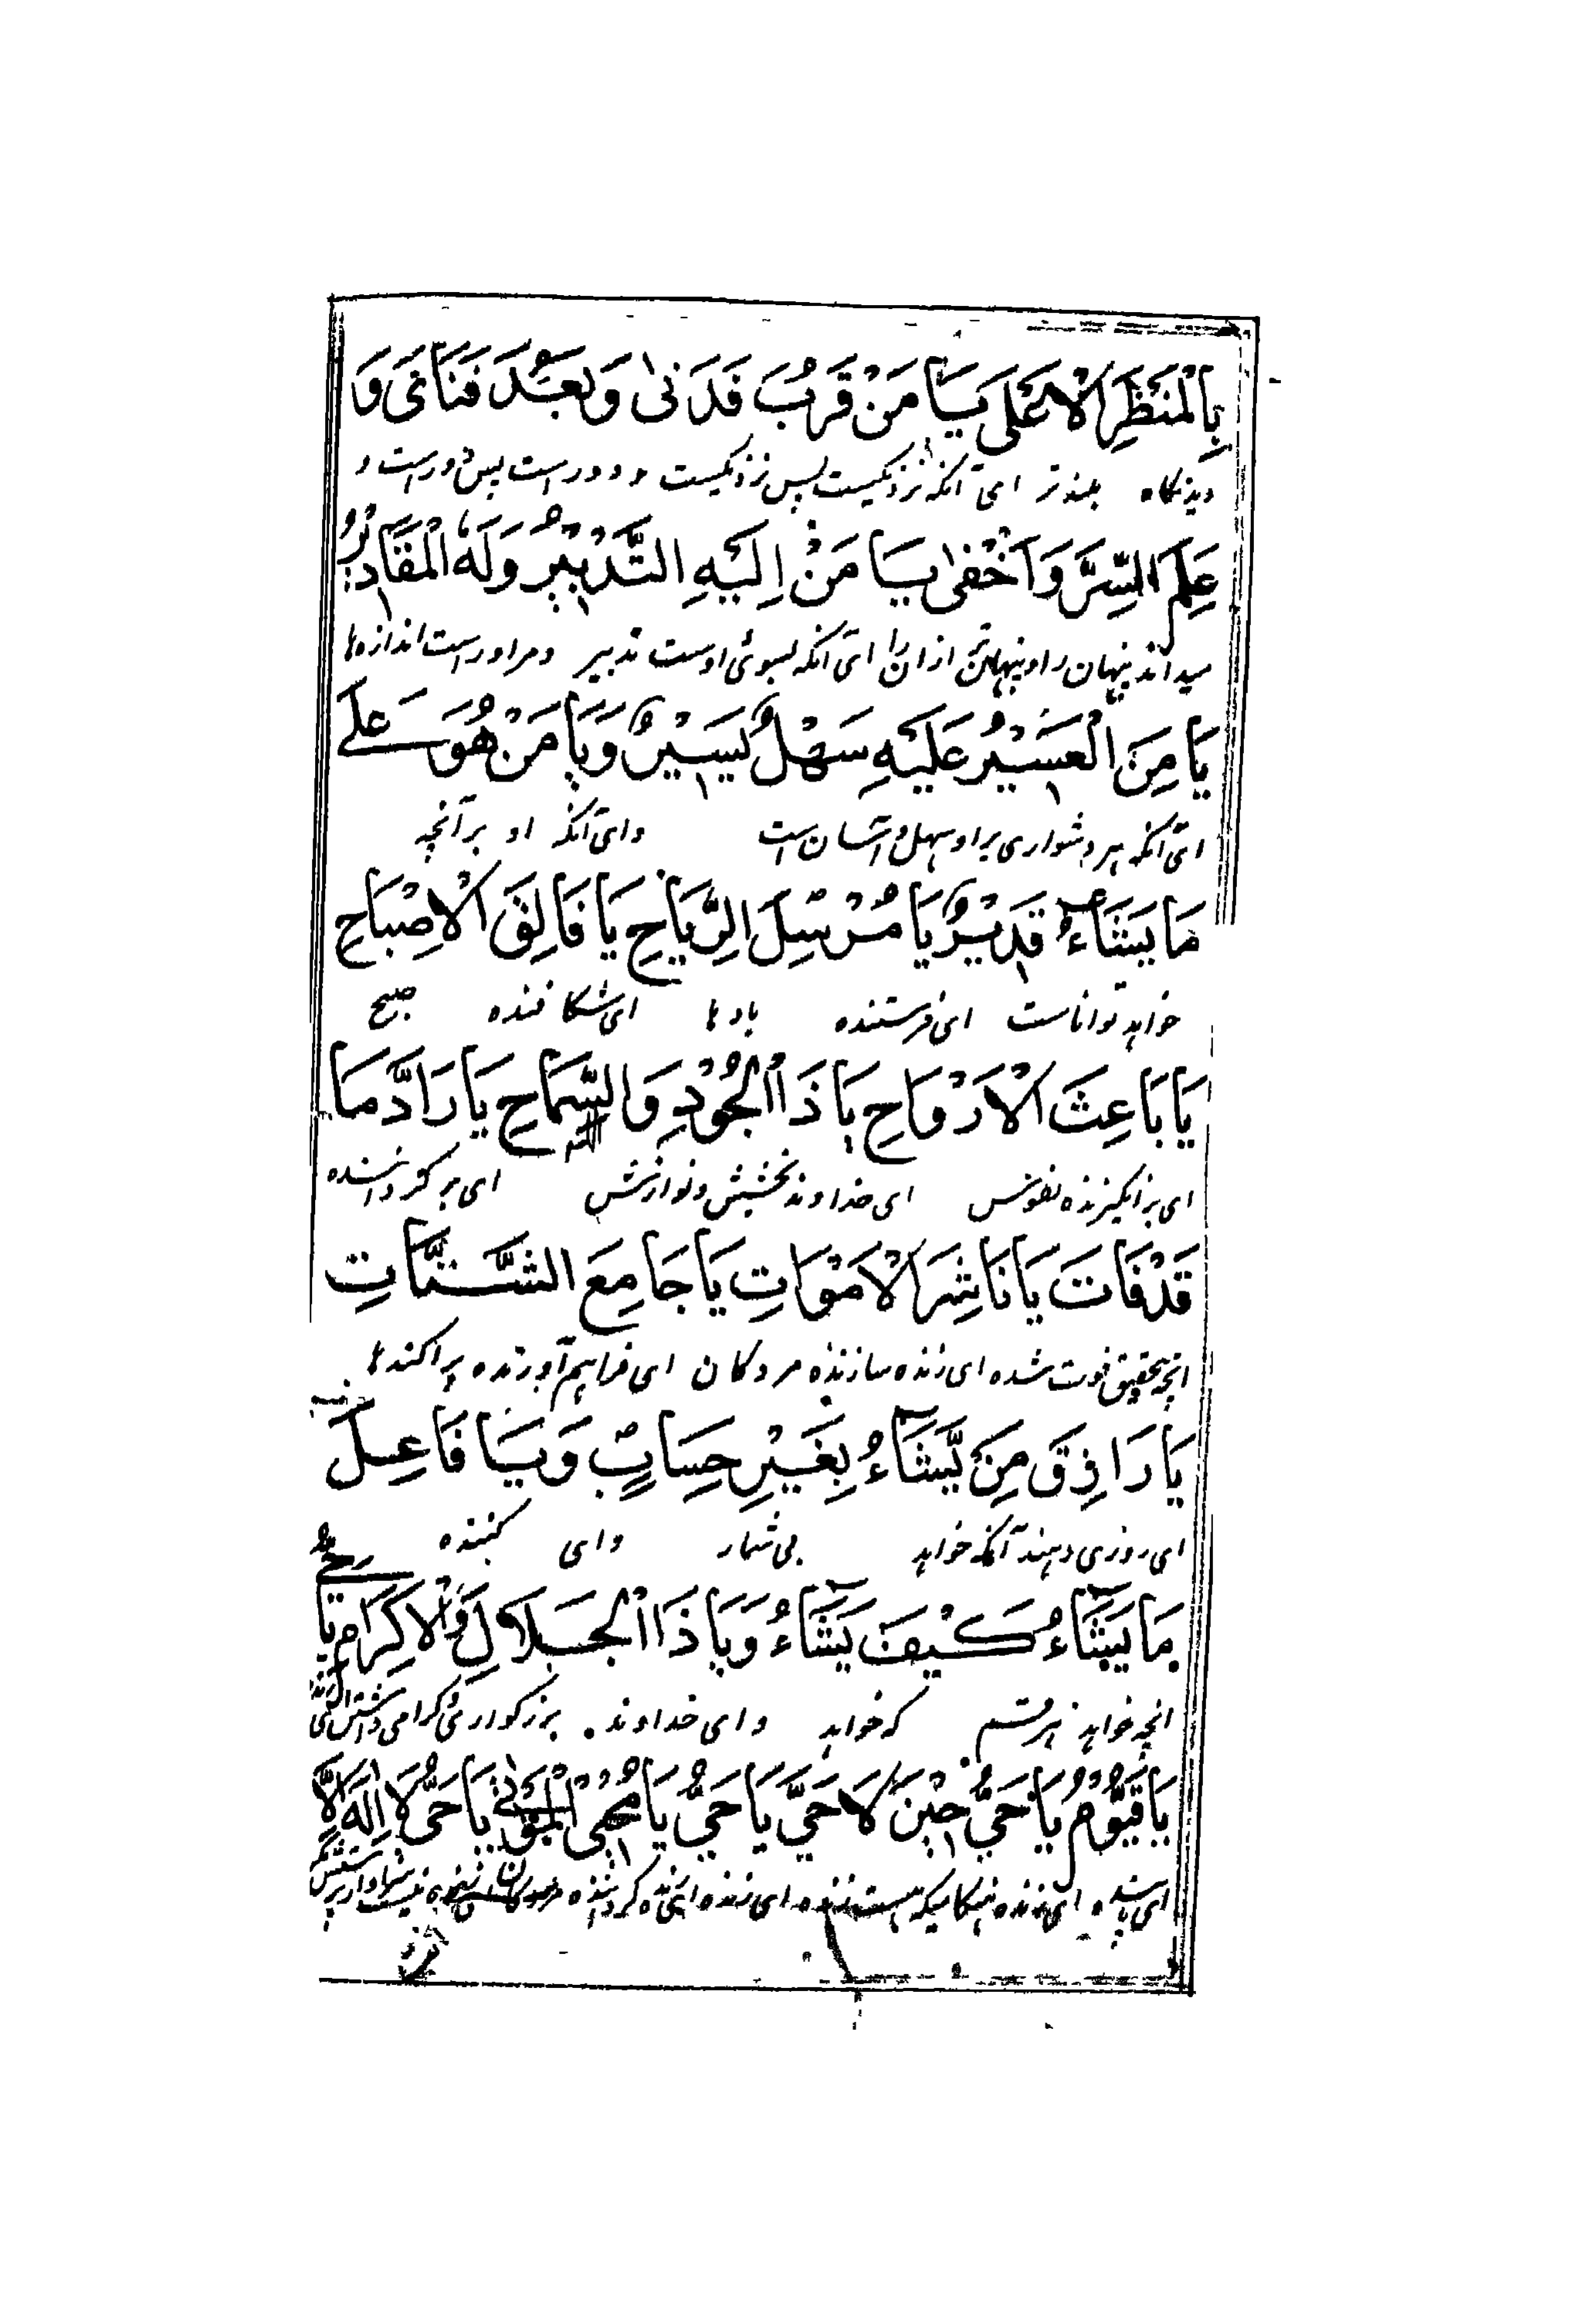 بِالْمَنْظَرِ الْاَعْلٰی یَا مَنْ قَرُبَ فَدَنٰی وَبَعُدَ فَنَاٰی وَ
دیدنگاه بلندتر ای آنکه نزدیکست پس نزدیکست و دورست پس دورست و
عَلِمَ السِّرَّ وَاَخْفٰی یَا مَنْ اِلَیْهِ التَّدْبِیْرُ وَلَهُ الْمَقَادِیْرُ
میداند پنهان را و پنهانتر ازان را ای آنکه بسوی اوست تدبیر و مر اوراست اندازه‌ها
یَا مَنِ الْعَسِیْرُ عَلَیْهِ سَهْلٌ یَسِیْرٌ وَیَا مَنْ هُوَ عَلٰی
ای آنکه هر دشواری بر او سهل و آسان است وای آنکه او بر آنچه
مَا یَشَآءُ قَدِیْرٌ یَا مُرْسِلَ الرِّیَاحِ یَا فَالِقَ الْاِصْبَاحِ
خواهد تواناست ای فرستنده بادها ای شکافنده صبح
یَا بَاعِثَ الْاَرْوَاحِ یَا ذَا الْجُوْدِ وَالسَّمَاحِ یَا رَادَّ مَا
ای برانگیزنده نفوس ای خداوند بخشش و نوازش ای برگرداننده
قَدْ فَاتَ یَا نَاشِرَ الْاَمْوَاتِ یَا جَامِعَ الشَّتَاتِ
انچه بتحقیق فوت شده ای زنده سازنده مردگان ای فراهم آورنده پراکندها
یَا رَازِقَ مَنْ یَّشَآءُ بِغَیْرِ حِسَابٍ وَیَا فَاعِلَ
ای روزی دهنده آنکه خواهد بی شمار وای کننده
مَا یَشَآءُ کَیْفَ یَشَآءُ وَیَا ذَا الْجَلَالِ وَالْاِکْرَامِ یَا حَیُّ
انچه خواهد هر قسم که خواهد وای خداوند بزرگواری و گرامی داشتن ای زنده
یَا قَیُّوْمُ یَا حَیُّ حِیْنَ لَا حَیَّ یَا حَیُّ یَا مُحْیِیَ الْمَوْتٰی یَا حَیُّ لَا اِلٰهَ اِلَّا
ای پاینده ای زنده هنگامیکه نیست زنده ای زنده ای زنده گرداننده مردگان ای زنده نیست سزاوار پرستش